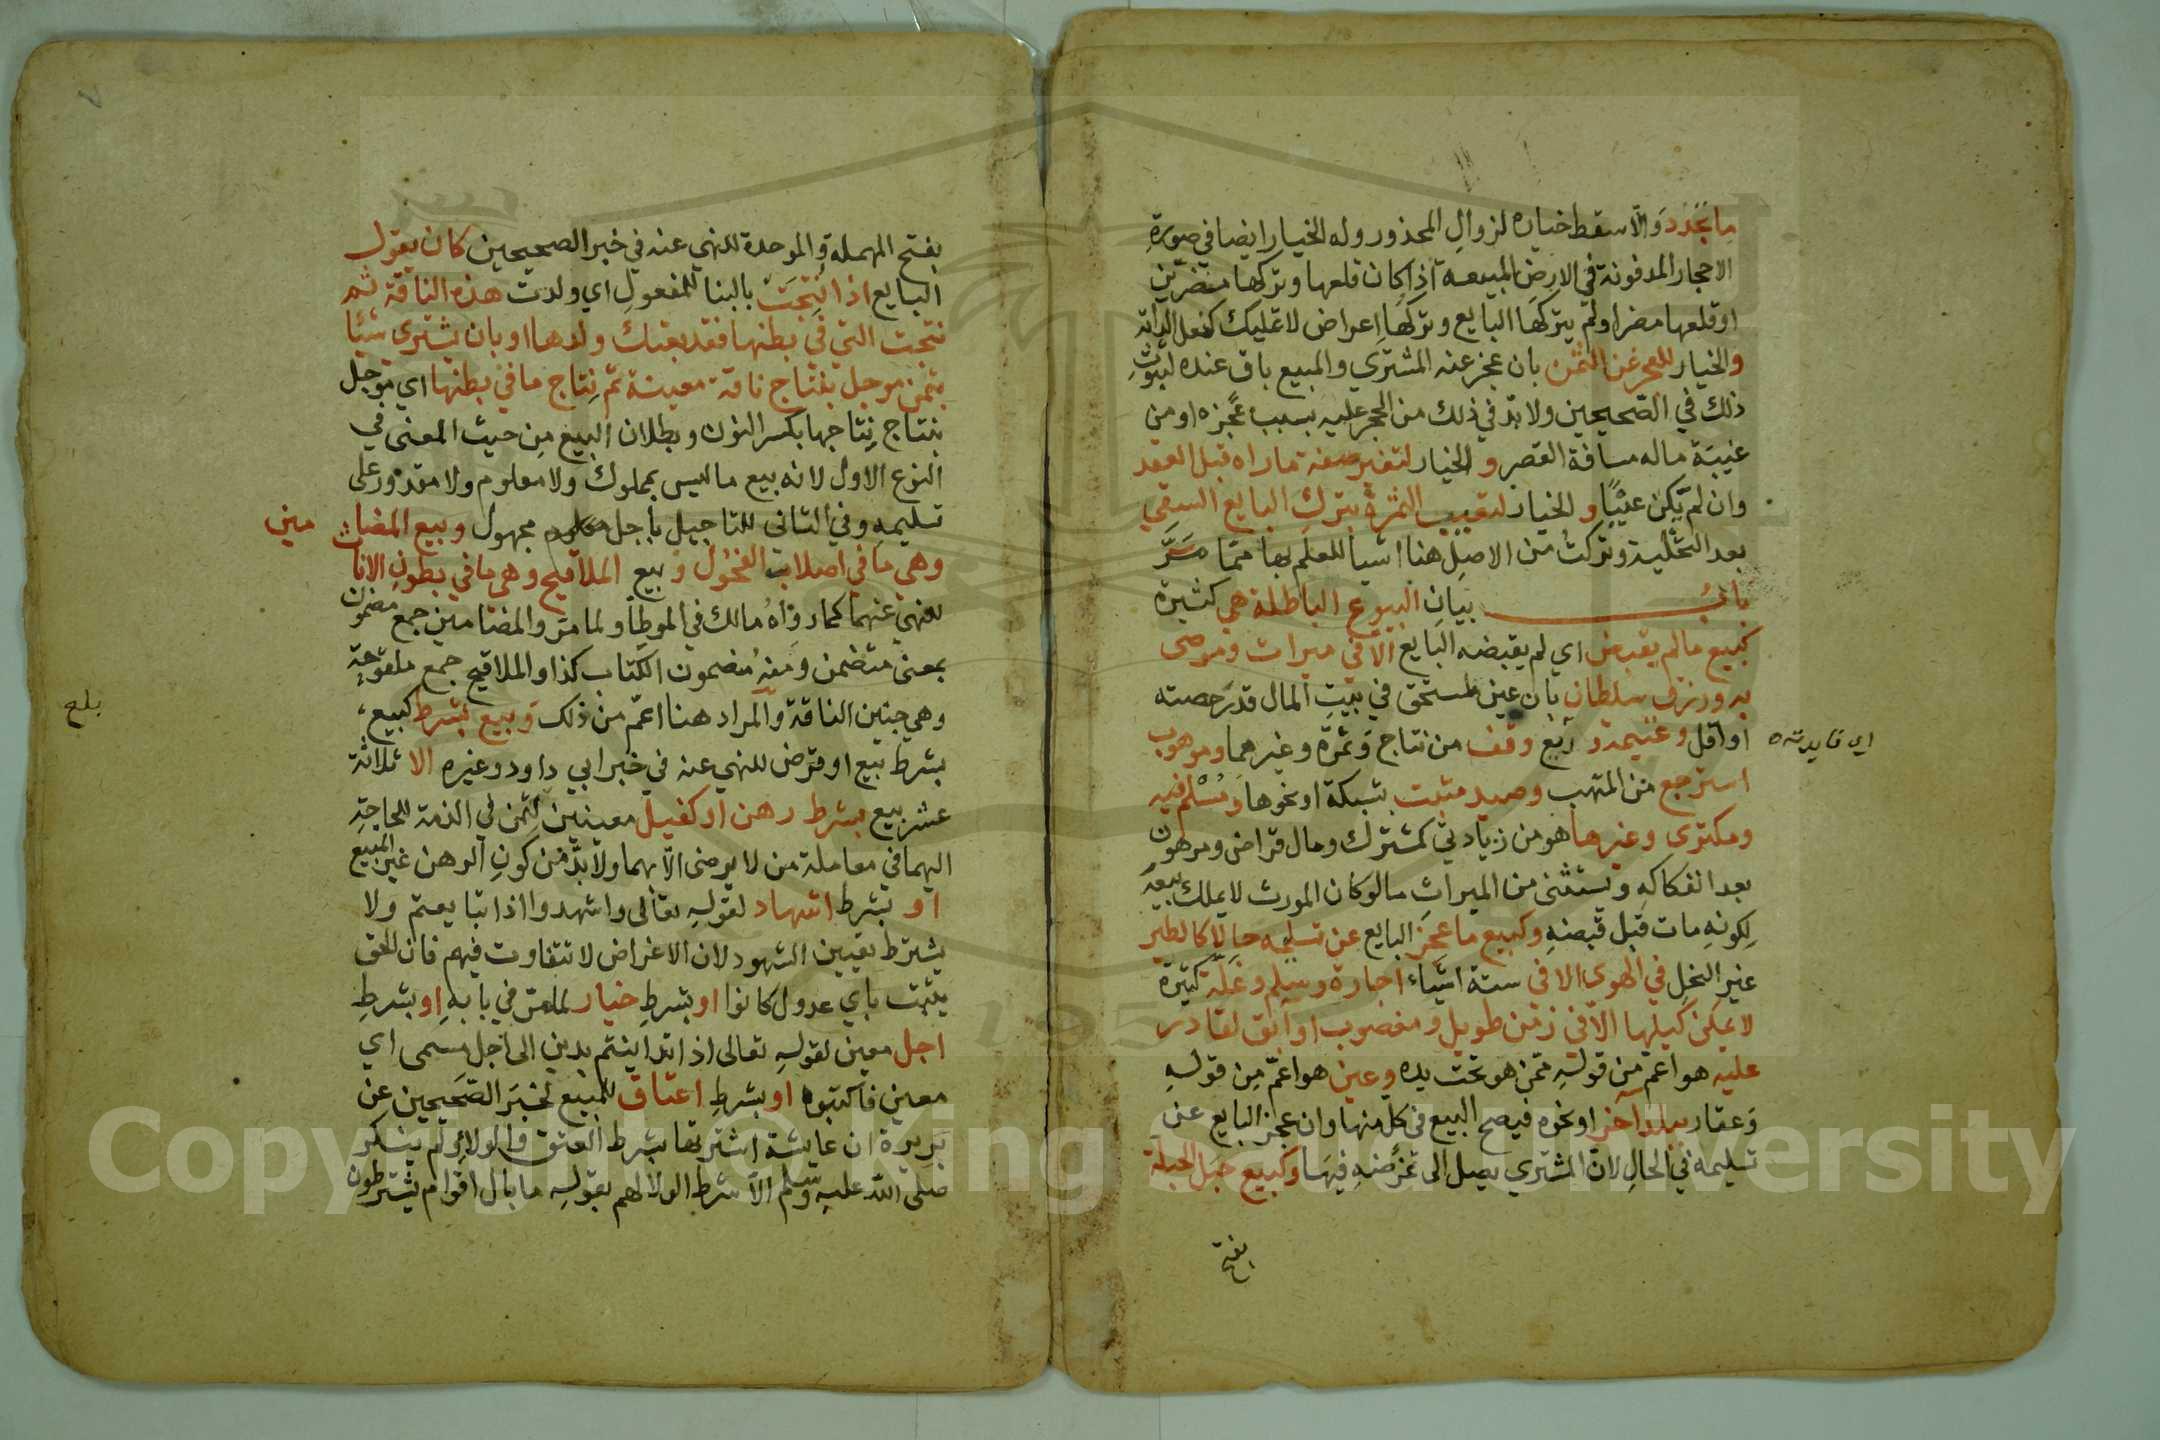 ما تجدد والا سقط خياره لزوال المحذور وله الخيار ايضا في صورة
الاحجار المدفونة في الارض المبيعة اذا كان قلعها وتركها مضرين
او قلعها مضرا ولم يتركها البايع وتركها اعراض لا تمليك كنعل الدابة
والخيار للعجز عن الثمن بان عجز عنه المشتري والمبيع باق عنده لثبوت
ذلك في الصحيحين ولا بد في ذلك من الحجر عليه بسبب عجزه او من
غيبة ماله مسافة القصر والخيار لتغير صفة ما راه قبل العقد
وان لم يكن عيبا والخيار لتعييب الثمرة بترك البايع السقي
بعد التخلية وتركت من الاصل هنا اشيا للعلم بها مما مر
باب بيان البيوع الباطلة هي كثيرة
كبيع ما لم يقبض اي لم يقبضه البايع الا في ميراث وموصى
به ورزق سلطان بان عين لمستحق في بيت المال قدر حصته
او اقل وغنيمة وريع وقف من نتاج وثمرة وغيرهما وموهوب
اي فايدته
استرجع من المتهب وصيد مثبت بشبكة او نحوها ومسلم فيه
ومكترى وغيرها هو من زيادتي كمشترك ومال قراض ومرهون
بعد انفكاكه ويستثنى من الميراث ما لو كان المورث لا يملك بيعه
لكونه مات قبل قبضه وكبيع ما عجز البايع عن تسليمه حالا كالطير
غير النحل في الهوى الا في ستة اشياء اجارة وسلم وغلة كثيرة
لا يمكن كيلها الا في زمن طويل ومغصوب او ابق لقادر
عليه هو اعم من قوله ممن هو تحت يده وعين هو اعم من قوله
وعقار ببلد اخر او نحوه فيصح البيع في كل منها وان عجز البايع عن
تسليمه في الحال لان المشتري يصل الى غرضه فيها وكبيع حبل الحبلة
بفتح
٧
بفتح المهملة والموحدة للنهي عنه في خبر الصحيحين كان يقول
البايع اذا نتجت بالبنا للمفعول اي ولدت هذه الناقة ثم
نتجت التي في بطنها فقد بعتك ولدها او بان يشتري شيئا
بثمن موجل بنتاج ناقة معينة ثم نتاج ما في بطنها اي موجل
بنتاج نتاجها بكسر النون وبطلان البيع من حيث المعنى في
النوع الاول لانه بيع ما ليس بمملوك ولا معلوم ولا مقدور على
تسليمه وفي الثاني للتاجيل باجل مجهول وبيع المضا مين
وهي ما في اصلاب الفحول وبيع الملاقيح وهي ما في بطون الاناث
للنهي عنهما كما رواه مالك في الموطأ ولما مر والمضامين جمع مضمون
بمعنى متضمن ومنه مضمون الكتاب كذا والملاقيح جمع ملقوحة
وهي جنين الناقة والمراد هنا اعم من ذلك وبيع بشرط كبيع
بلغ
بشرط بيع او قرض للنهي عنه في خبر ابي داود وغيره الا ثلاثة
عشر بيع بشرط رهن او كفيل معينين لثمن في الذمة للحاجة
اليهما في معاملة من لا يرضى الا بهما ولا بد من كون الرهن غير المبيع
او بشرط اشهاد لقوله تعالى واشهدوا اذا تبايعتم ولا
يشترط تعيين الشهود لان الاغراض لا تتفاوت فيهم فان الحق
يثبت باي عدول كانوا او بشرط خيار لما مر في بابه او بشرط
اجل معين لقوله تعالى اذا تداينتم بدين الى اجل مسمى اي
معين فاكتبوه او بشرط اعتاق للمبيع لخبر الصحيحين عن
بريرة ان عايشة اشترتها بشرط العتق والولا ولم ينكر
صلى الله عليه وسلم الا شرط الولا لهم بقوله ما بال اقوام يشترطون
Copyright © King Saud University